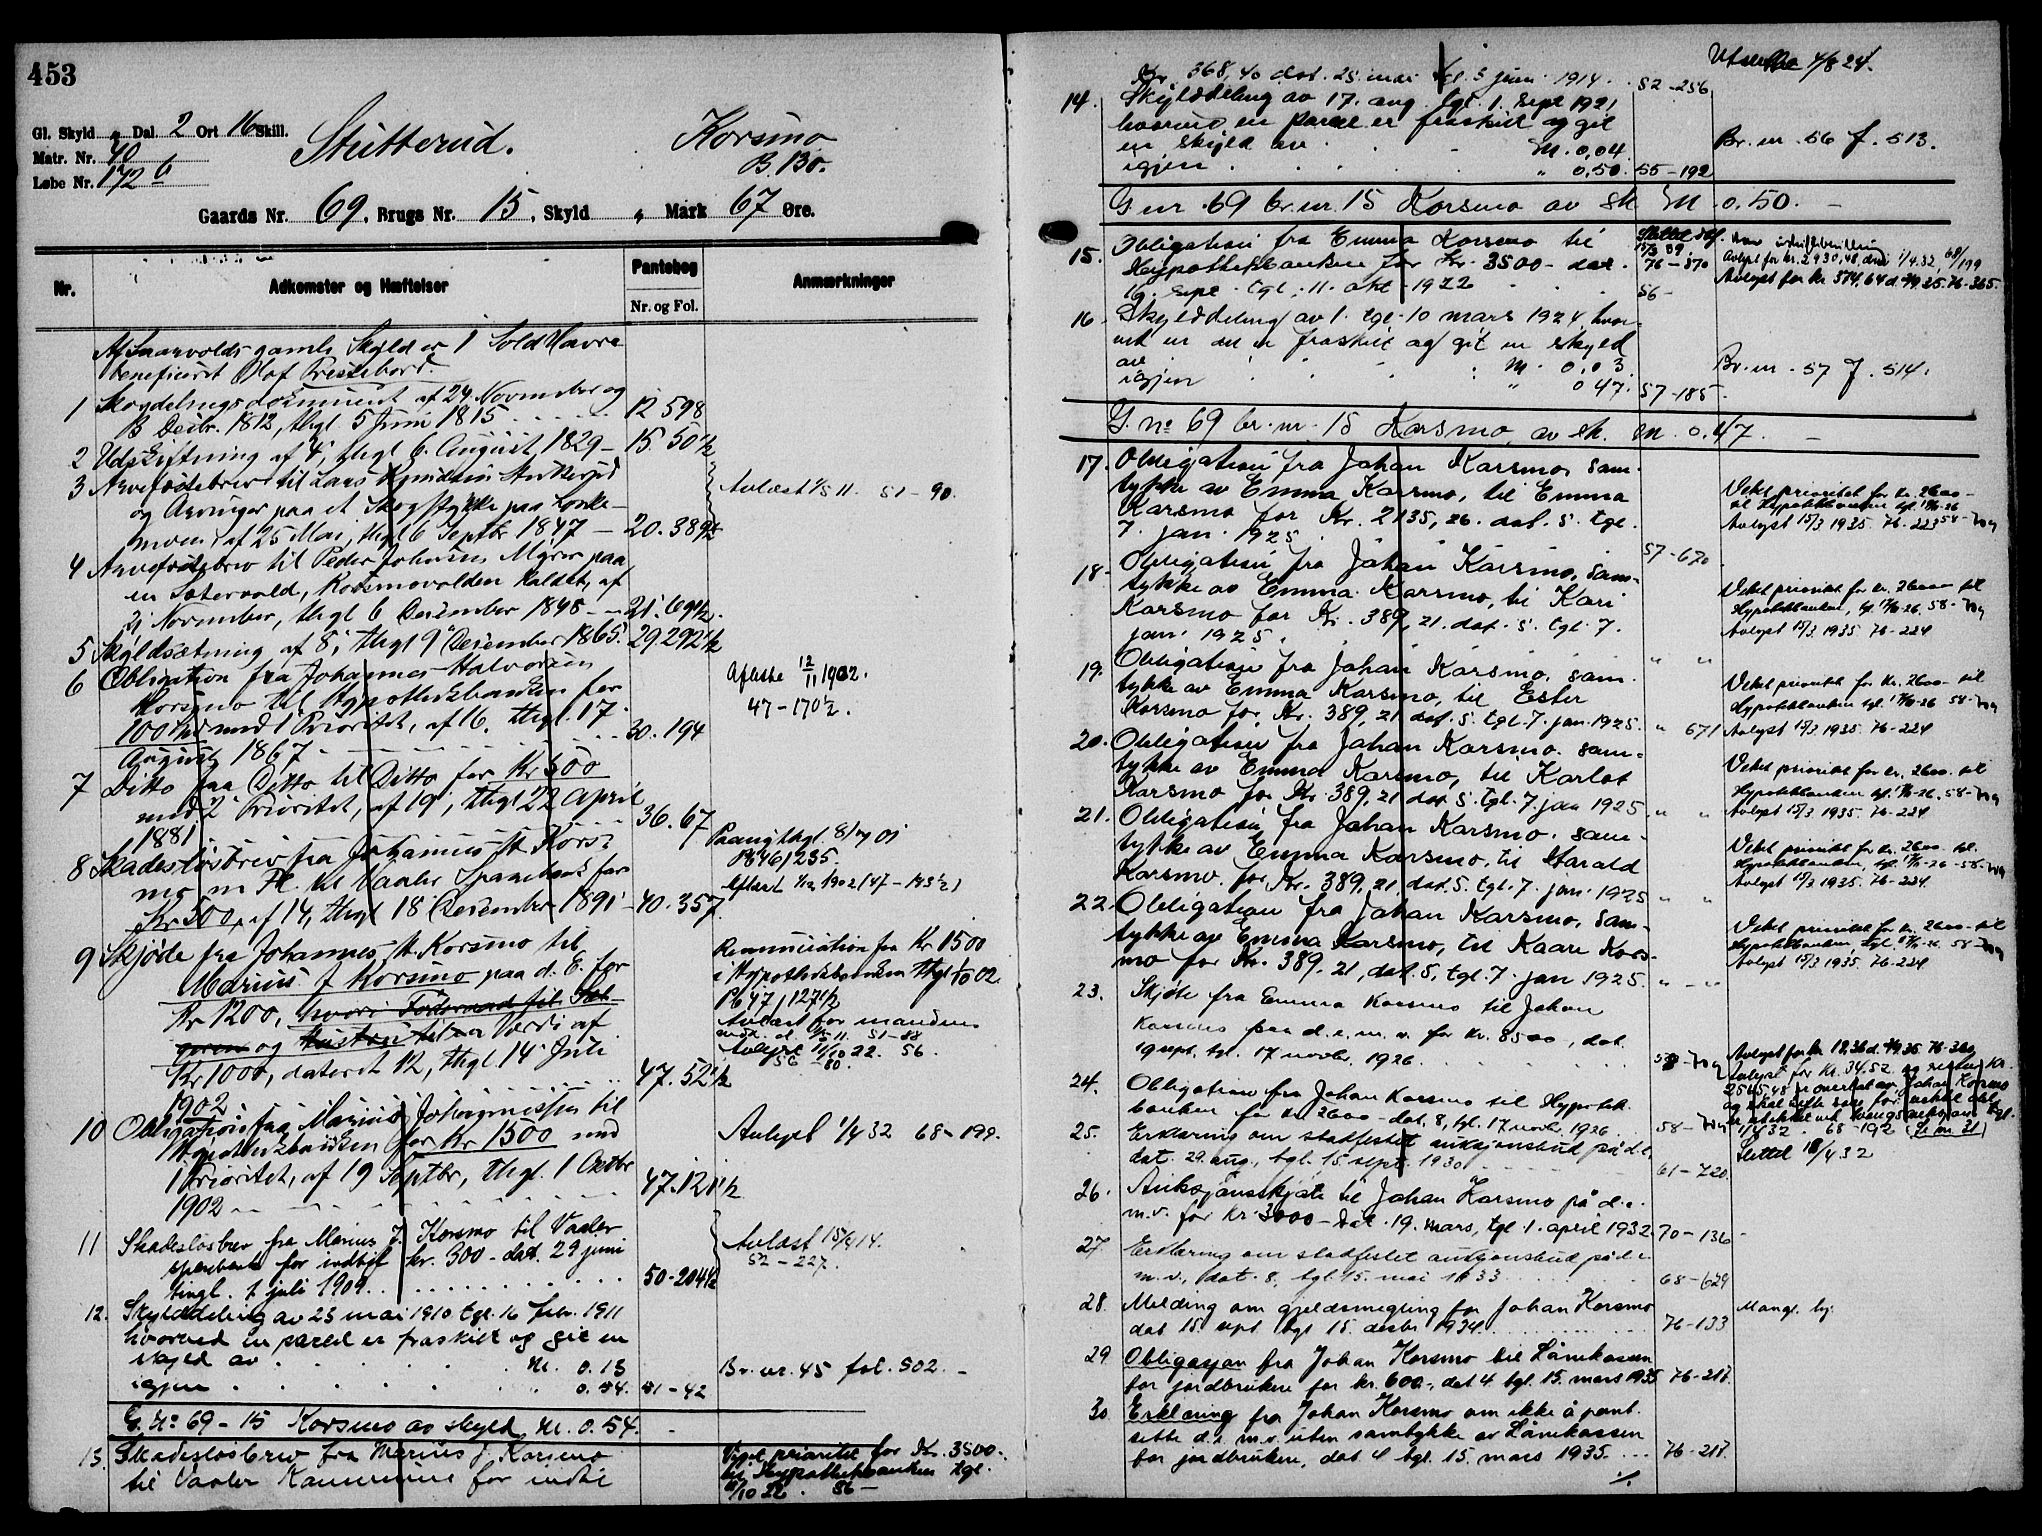 453
Gl. Skyld „ Dal. 2 Ort 16 Skill.
Matr. Nr. 40
Løbe Nr. 172 b
Stutterud.
Korsmo
B. Bo.
Gaards Nr. 69, Brugs Nr. 15, Skyld „ Mark 67 Øre.
Nr.
Adkomster og Hæftelser
Pantebog
Nr. og Fol.
Anmærkninger
gamle Skyld er 1
beneficeret Olof Prestebord.
1 Skovdelingsdokument af 24 November og
B Decbr. 1812, thgl. 5 Juni 1815 12 598
2 Udskiftning af 4, thgl 6. August 1829 – 15. 50½
3 Arvefæstebrev til Lars
og Arvinger paa et Skogstykke paa
moen, af 25 Mai, thgl 6 Septbr 1847 – 20. 389½
Avlæst 1/5 11. 51 – 90.
4 Arvefæstebrev til Peder Johnsen Myrer paa
en Sætervold, Korsmovolden kaldet, af
November, thgl 6 December 1848 – 21. 691½.
5 Skyldsætning af 8, thgl 9 December 1865. 29. 292½
6 Obligation fra Johannes Halvorsen
Korsmo til Hypothekbanken for
100 Spd med 1 Prioritet, af 16. thgl. 17
August 1867 30. 194
Aflæste 12/11 1902.
47 – 170½.
7 Ditto fra Ditto til Ditto for Kr 500
med 2 Prioritet, af 19, thgl 22 April
1881 36. 67
8 Skadesløsbrev fra Johannes H. Kors-
mo m Fl. til Vaaler Sparebank for
Kr 500, af 14, thgl 18 December 1891 – 40. 357.
Pb 46/235.
9 Skjøde fra Johannes H. Korsmo til
Marius J Korsmo paa d. E. for
Kr 1200, hvori Føderaad til Sæl-
geren og Hustru til en Værdi af
Kr 1000, dateret 12, thgl 14 Juli
1902. 47. 52½
Renunciation fra Kr 1500
i Hypothekbanken thgl 1/10 02.
Pb 47/127½
Avlæst for mandens
51 – 88
Avlyst 11/10 22. 56.
56 – 80.
10 Obligation fra Marius Johannessen til
Hypothekbanken for Kr 1500 med
1 Prioritet, af 19 Septbr, thgl. 1 Oktbr
1902 47. 121½
Avlyst 1/4 32 68 – 199.
11 Skadesløsbrev fra Marius J. Korsmo til Vaaler
sparebank for indtil kr. 300 – dat. 29 juni
tingl. 1 juli 1909. 50 – 204½
Avlæst 15/6 14.
52 – 227.
12. Skylddeling av 23 mai 1910 tgl. 16 febr. 1911
hvorved en parcel er fraskilt og git en
skyld av M. 0.13
igjen „ 0.54. 51 – 42
Br. nr. 45 fol. 502. –
G. No 69 – 15 Korsmo av skyld M. 0.54.
13. Skadesløsbrev fra Marius J. Korsmo
til Vaaler Kommune for indtil
Viget prioritet for Kr. 3500.
til Hypothekbanken tgl.
11/10 22. 56 –
Utskrevet 4/8 24.
Kr. 368,40 dat. 25. mai tgl. 3 juni 1914. 52 – 256
14. Skylddeling av 17. aug. tgl. 1. sept 1921
hvorved en parcel er fraskilt og git
en skyld av M. 0,04.
igjen „ 0,50. 55 – 192
Br. nr. 56 f. 513.
G nr. 69 br. nr. 15 Korsmo av sk M. 0.50. –
15. Obligation fra Emma Korsmo til
Hypothekbanken for Kr. 3500 – dat.
19. sept. tgl. 11. okt. 1922 56 –
76 – 370
Avlyst for kr. 2930,48, 1/4.32, 68/199
Avlyst for kr 574,64 76-365
16. Skylddeling av 1. tgl. 10 mars 1924 hvor-
ved en del er fraskilt og git en skyld
av M. 0,03
igjen „ 0 47. 57 – 185.
Br. nr. 57 f. 514.
G. No 69 br. nr. 15 Korsmo av sk. M. 0.47. –
17. Obligation fra Johan Korsmo, sam-
tykke av Emma Korsmo, til Emma
Korsmo for Kr. 2135, 26. dat. 5. tgl.
7. jan. 1925. 57 – 670
Veket prioritet for kr. 2600 –
til Hypotekbanken tgl. 17/11-26
Avlyst 15/3 1935. 76 – 223
18. Obligation fra Johan Korsmo, sam-
tykke av Emma Korsmo, til Kari
Korsmo for Kr. 389, 21. dat. 5. tgl. 7.
jan. 1925. „ „
Veket prioritet for kr. 2600 – til
Hypotekbanken, tgl. 17/11-26, 58 –
Avlyst 15/3 1935. 76 – 224
19. Obligation fra Johan Korsmo, sam-
tykke av Emma Korsmo, til Ester
Korsmo for Kr. 389, 21 dat. 5. tgl. 7. jan. 1925. „ 671
Veket prioritet for kr. 2600 – til
Hypotekbanken tgl. 17/11-26 58 –
Avlyst 15/3 1935. 76 – 224
20. Obligation fra Johan Korsmo. sam-
tykke av Emma Korsmo, til Karlot
Korsmo for Kr. 389, 21 dat 5. tgl. 7. jan 1925 „ „
Veket prioritet for kr. 2600. til
Hypotekbanken tgl. 17/11-26. 58 –
Avlyst 15/3 1935. 76 – 224
21. Obligation fra Johan Korsmo. sam-
tykke av Emma Korsmo, til Harald
Korsmo. for Kr. 389, 21, dat. 5. tgl. 7. jan. 1925 „ „
Veket prioritet for kr. 2600. til
Hypotekbanken, tgl. 17/11-26 – 58 –
Avlyst 15/3 1935. 76 – 224.
22. Obligation fra Johan Korsmo, sam-
tykke av Emma Korsmo, til Kaare Kors-
mo for Kr. 389, 21, dat. 5. tgl. 7. jan 1925. „ – „
Veket prioritet for kr. 2600 – til
Hypotekbanken, tgl. 17/11-26. 58 –
Avlyst 15/3 1935. 76 – 224
23. Skjøte fra Emma Korsmo til Johan
Korsmo paa d. e. m. v. for kr. 8500, dat.
19 sept. tgl. 17 novbr. 1926
24. Obligation fra Johan Korsmo til Hypotek-
banken for kr. 2600 – dat. 8, tgl. 17 novbr. 1926 58 –
Avlyst for kr. 34.52. og resten kr.
2565.48 er overtat av Johan Korsmo
1/4 32. 68 – 192 (Se nr. 31)
Slettet 18/4 32
25. Erklæring om stadfestet auksjonsbud på d. e.
dat. 29. aug., tgl. 15. sept. 1930 61 – 720.
26. Auksjonsskjøte til Johan Korsmo på d. e.
m. v. for kr 3000 – dat. 19. mars, tgl 1. april 1932 70 – 136
27. Erklæring om stadfestet auksjonsbud på d. e
m. v., dat. 8. tgl. 15. mai 1933 68 – 629
28. Melding om gjeldsmegling for Johan Korsmo
dat 15. sept. tgl 15. desbr. 1934. 76 – 133
29 Obligasjon fra Johan Korsmo til Lånekassen
for jordbrukere for kr. 600 –, dat 4. tgl. 15. mars 1935 76 – 217.
30 Erklæring fra Johan Korsmo om ikke å pant-
sette d. e. m. v. uten samtykke av Lånekassen
for jordbrukere, dat. 4 tgl. 15. mars 1935. 76 – 218.